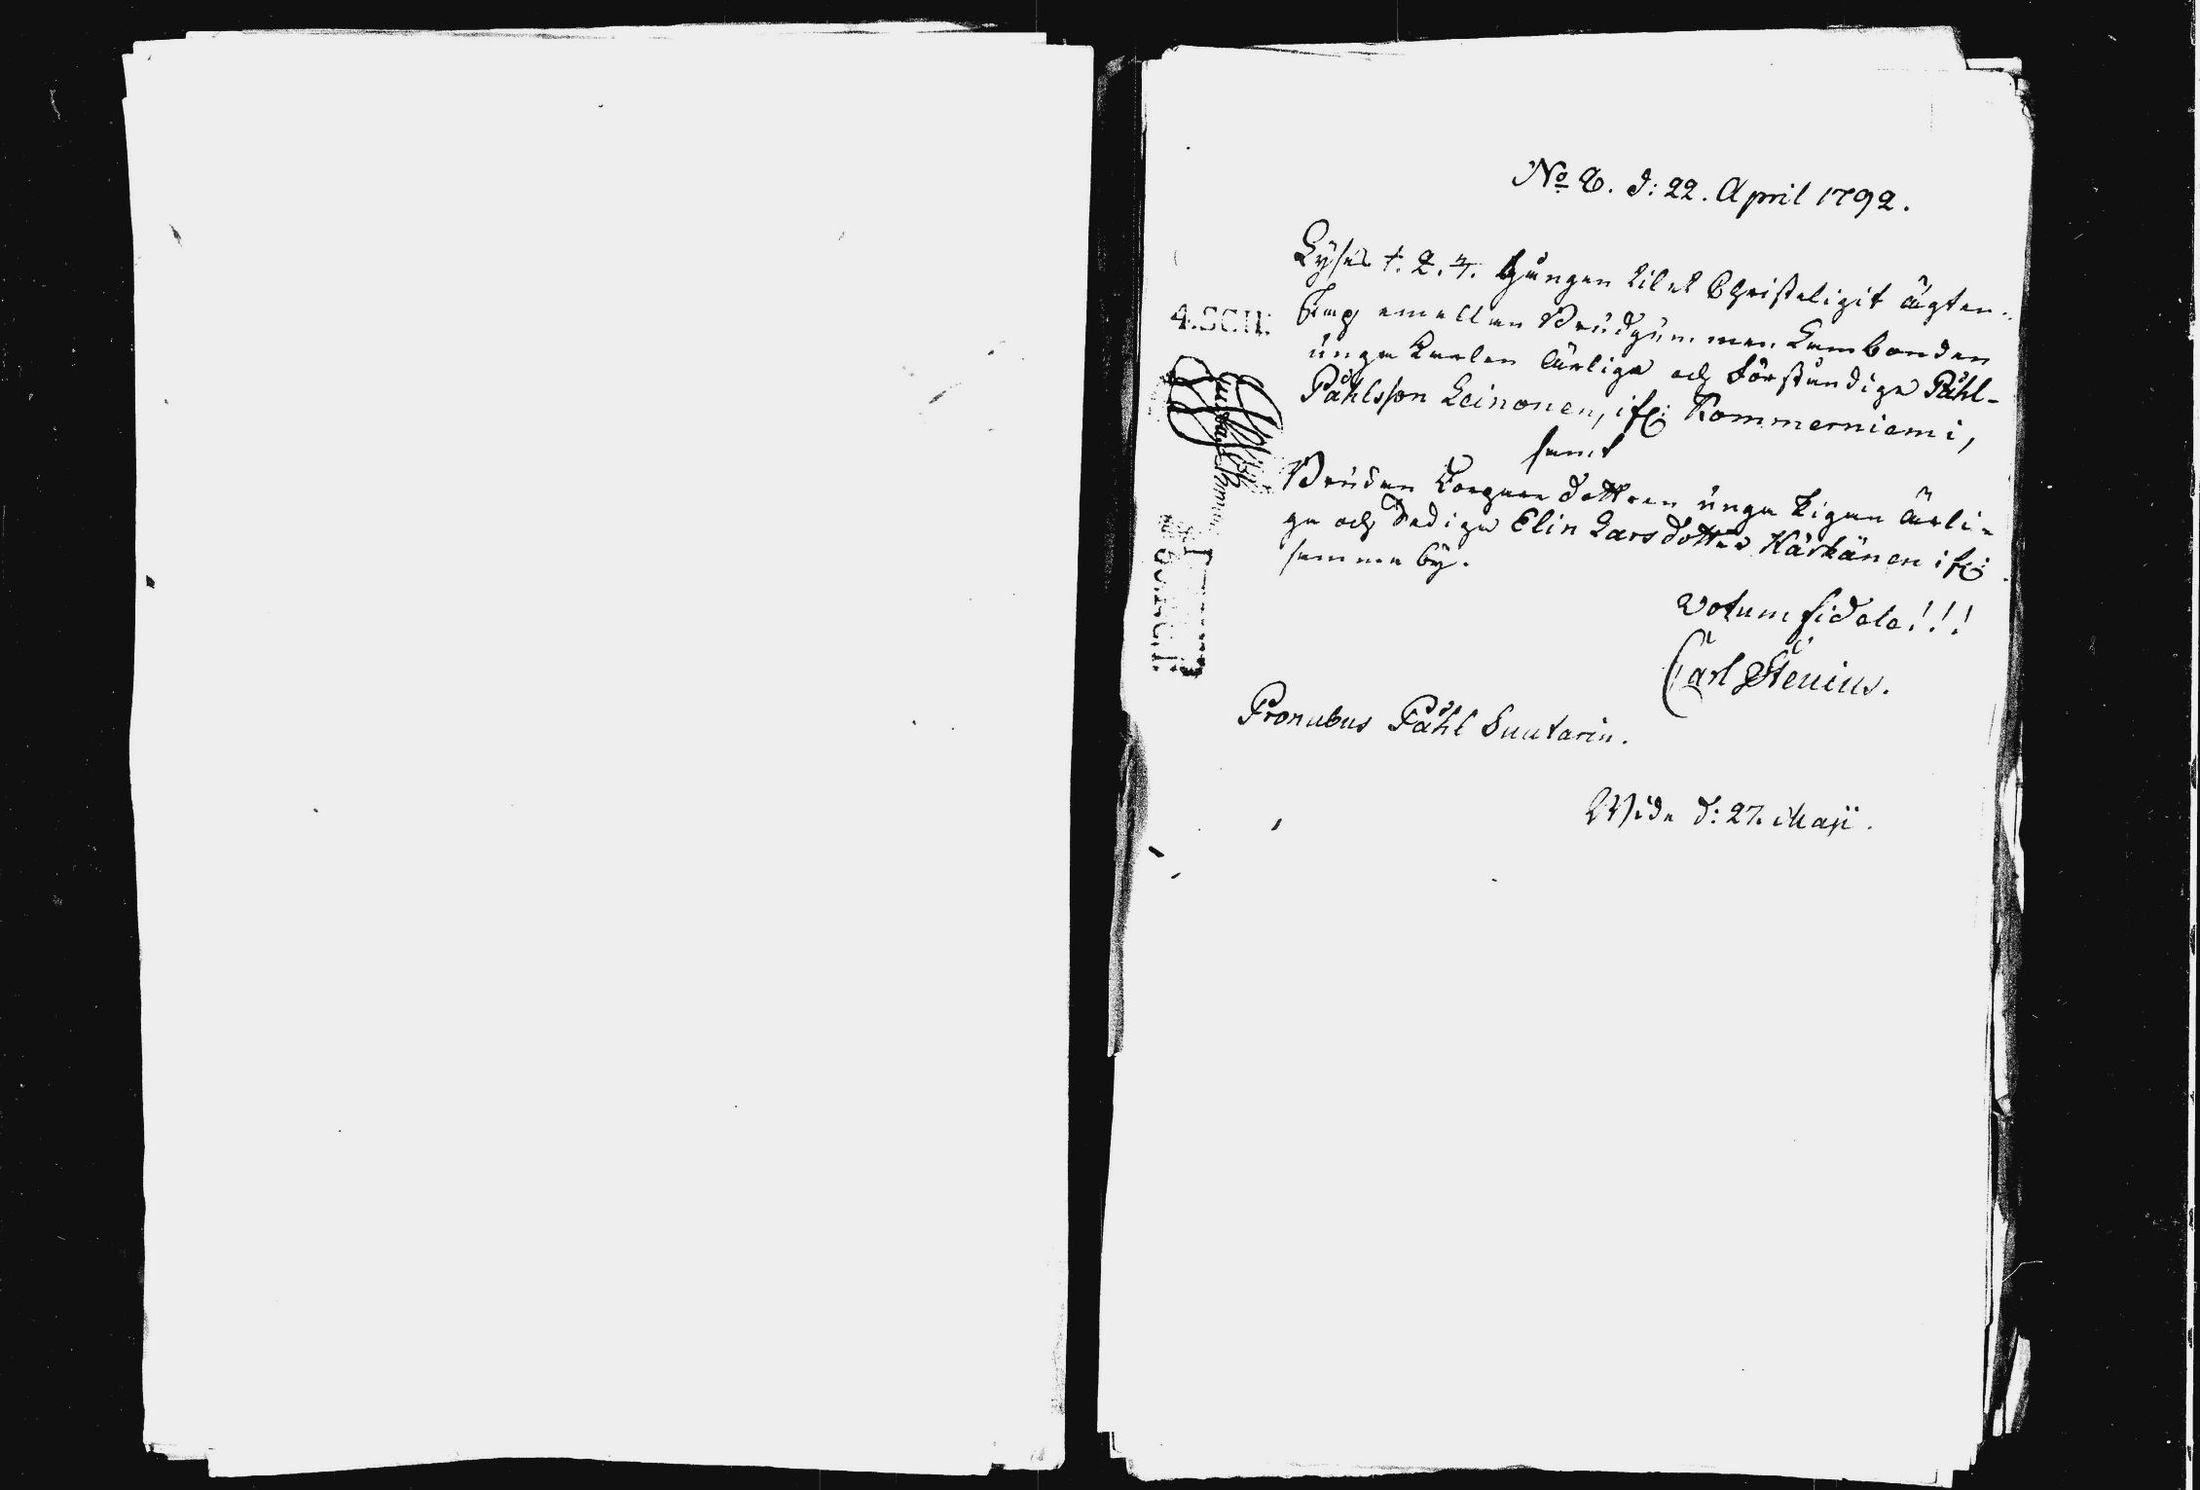 No 8. d: 22. April 1792.
Lyses 1. 2. 3. gången til et Christeligit ägten-
skap emellan Brudgummen Lambonden
unga Karlen ärlige och förståndige Påhl
Påhlsson Leinonen, ifr: Kommerniemi,
samt
Bruden Torpare dottren unga Pigan ärli-
ga och sediga Elin Larsdotter Kärkänen ifr:
samma by.
Votum fidele!!!
Carl Stenius.
Pronubus Påhl Suutarin.
Wide d: 27. Maji.
4.SCH: